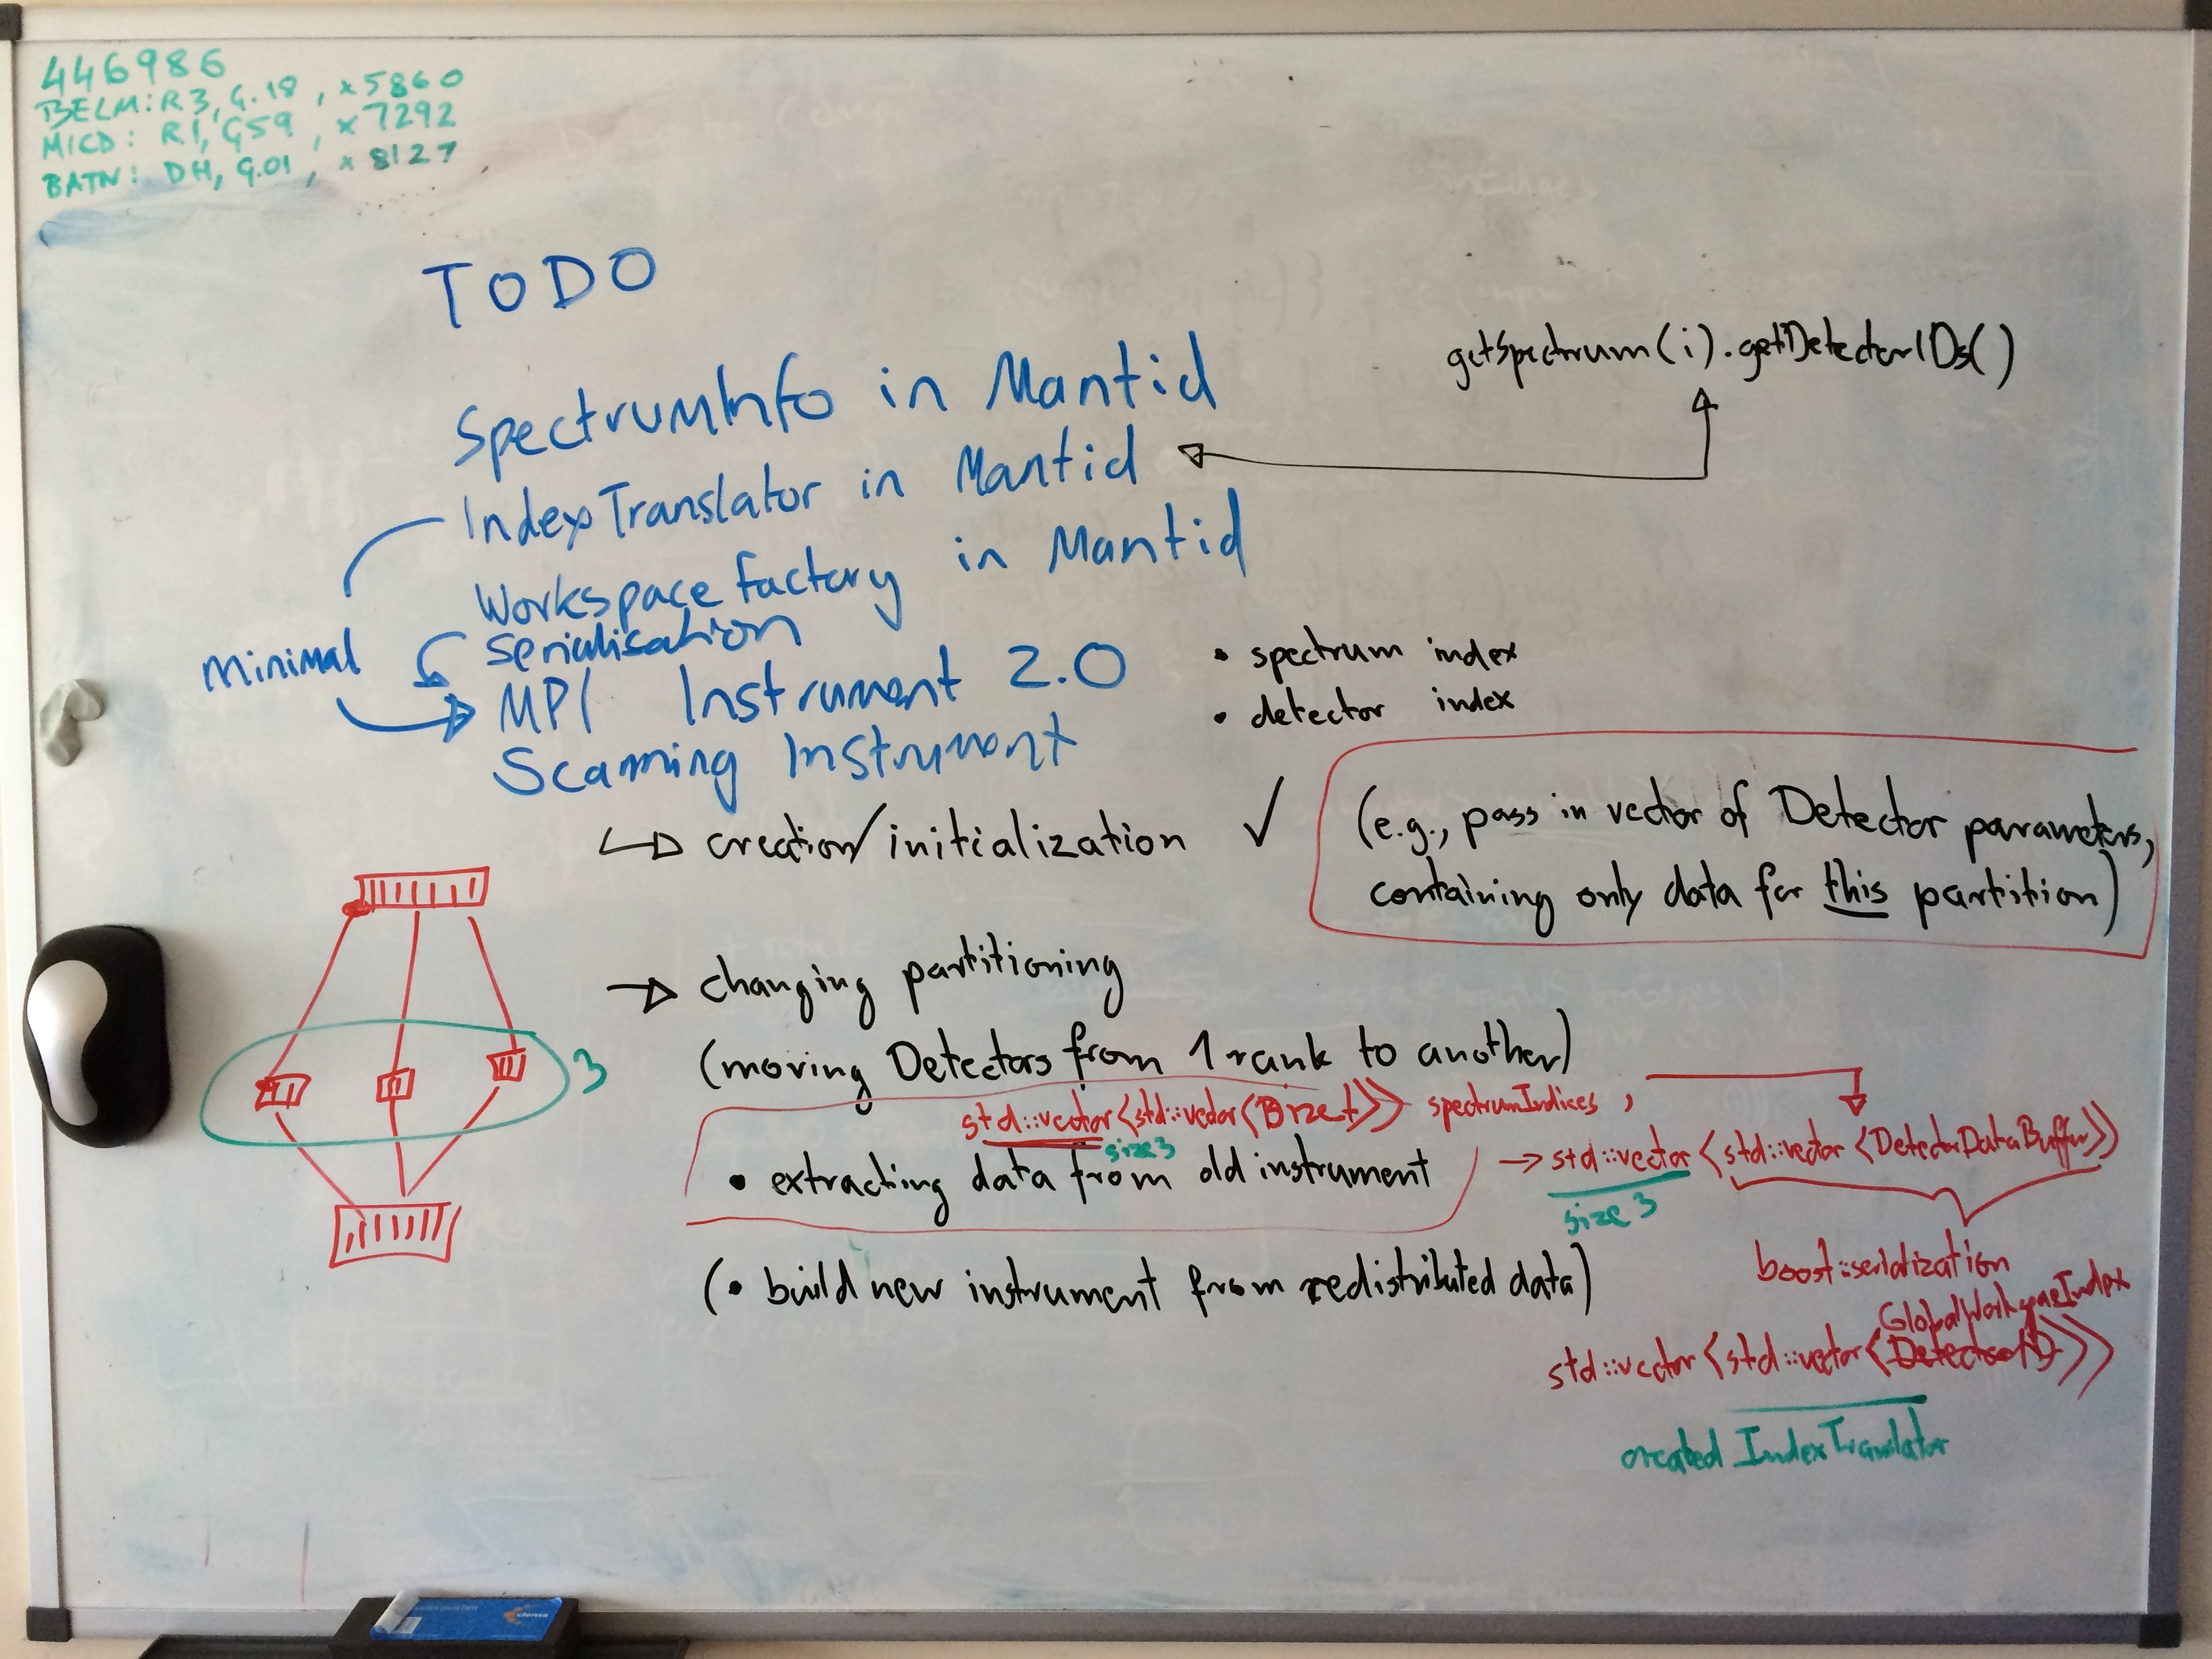 446986
BELM: R3, G.18, x5860
MICD: R1, G59, x7292
BATN: DH, G.01, x8127
TODO
SpectrumInfo in Mantid
getSpectrum(i).getDetectorIDs()
IndexTranslator in Mantid
Workspace factory in Mantid
serialisation
minimal
MPI Instrument 2.0
Scanning Instrument
• spectrum index
• detector index
↳ creation/initialization ✓
(e.g., pass in vector of Detector parameters,
containing only data for this partition)
→ changing partitioning
(moving Detectors from 1 rank to another)
3
std::vector<std::vector< >> spectrumIndices,
size 3
• extracting data from old instrument
→ std::vector<std::vector<DetectorDataBuffer>>
size 3
(• build new instrument from redistributed data)
boost::serialization
GlobalWorkspaceIndex
std::vector<std::vector<DetectorID>>
created IndexTranslator